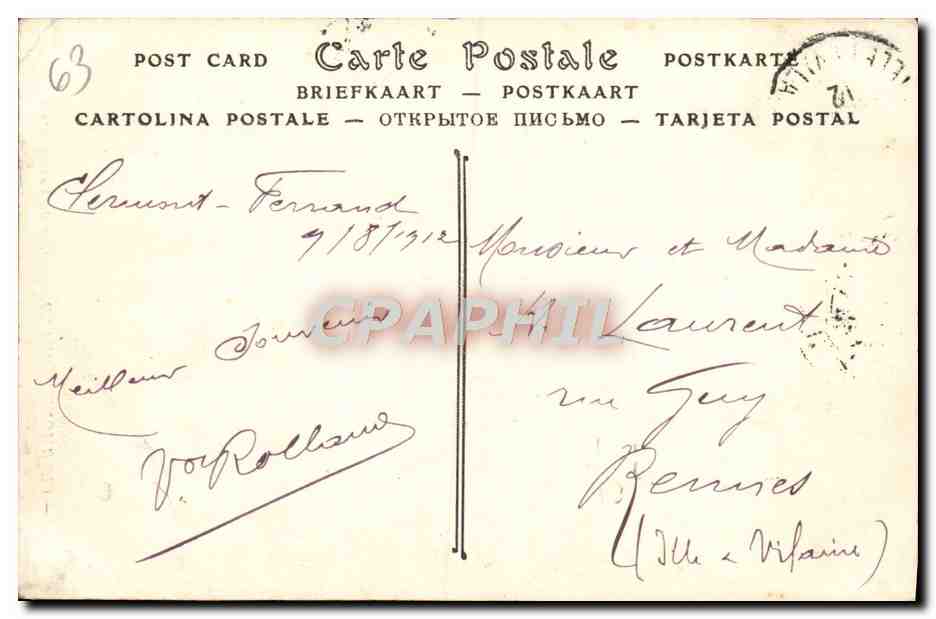 63
POST CARD Carte Postale POSTKARTE
BRIEFKAART — POSTKAART
CARTOLINA POSTALE — ОТКРЫТОЕ ПИСЬМО — TARJETA POSTAL
12
Clermont-Ferrand
9/8/1912
Meilleur Souvenir
Vor Rolland
Monsieur et Madame
A. Laurent
rue Guy
Rennes
(Ille & Vilaine)
CPAPHIL